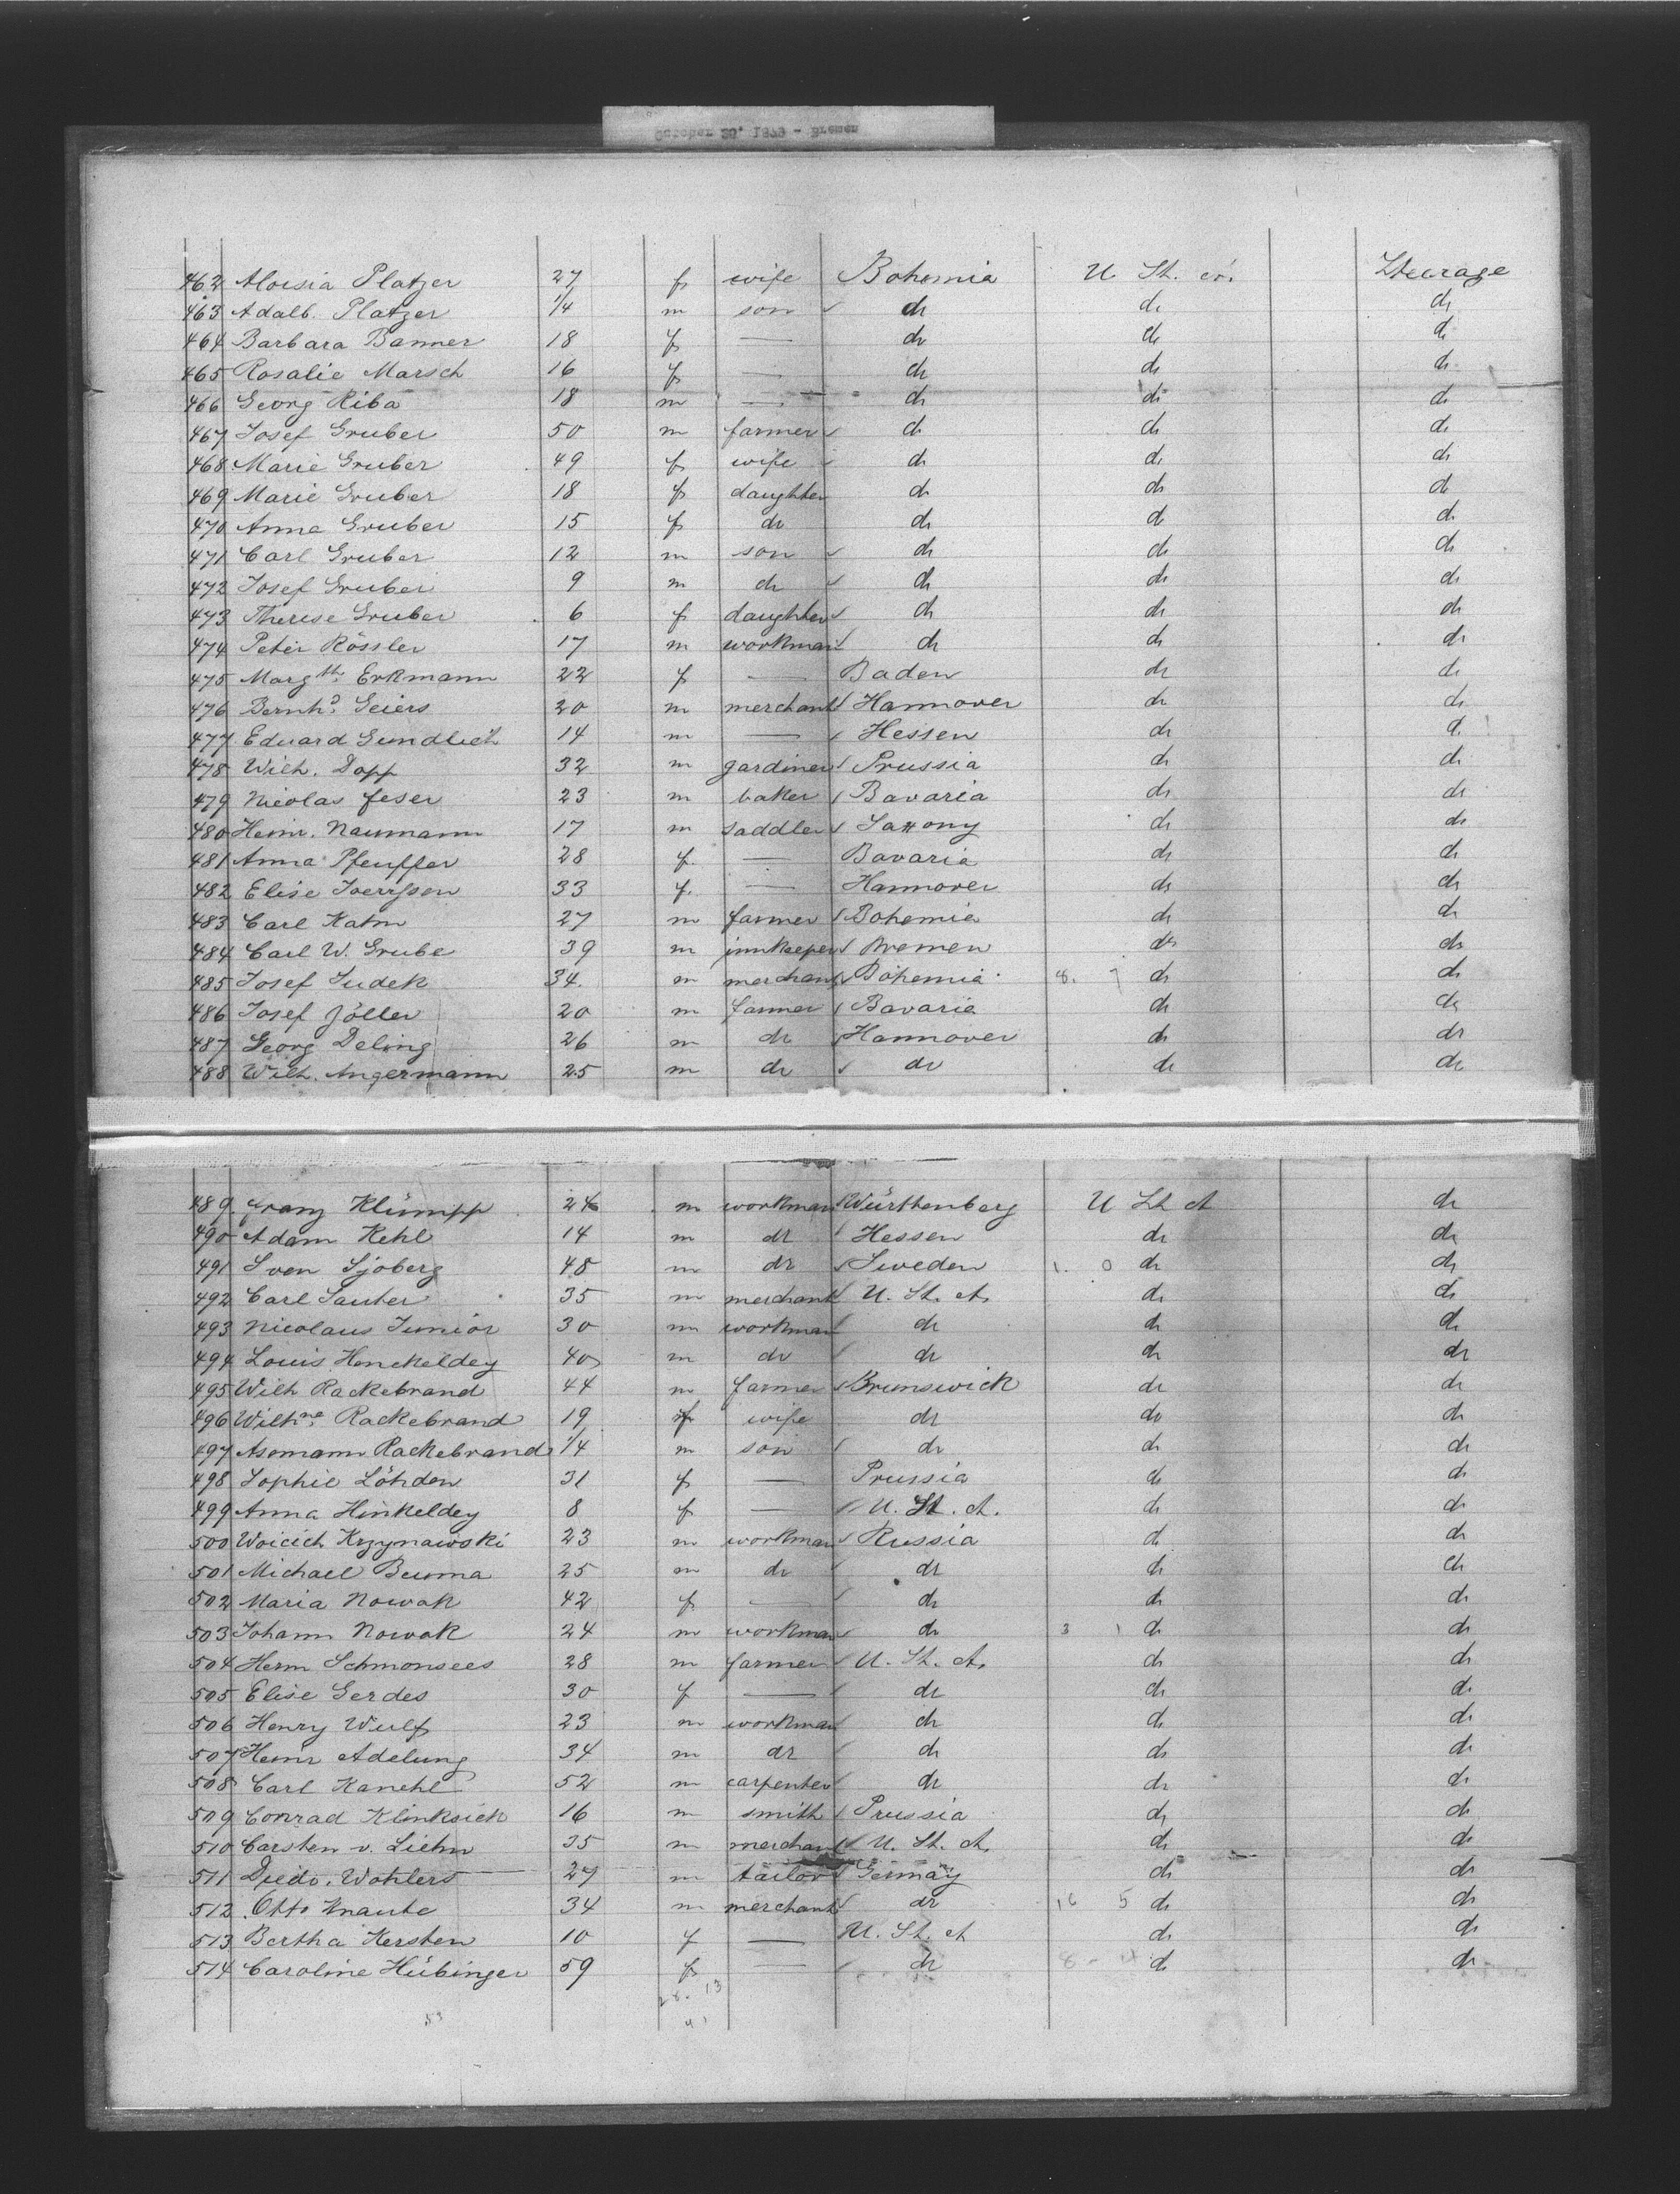 October 20, 1873 - Bremen
462 Aloisia Platzer 27 f wife Bohemia U. St. A. Steerage
463 Adalb. Platzer 1/4 m son do do do
464 Barbara Banner 18 f — do do do
465 Rosalie Marsch 16 f — do do do
466 Georg Riba 18 m — do do do
467 Josef Gruber 50 m farmer do do do
468 Marie Gruber 49 f wife do do do
469 Marie Gruber 18 f daughter do do do
470 Anna Gruber 15 f do do do do
471 Carl Gruber 12 m son do do do
472 Josef Gruber 9 m do do do do
473 Therese Gruber 6 f daughter do do do
474 Peter Rössler 17 m workman do do do
475 Margth. Erkmann 22 f — Baden do do
476 Bernhd. Geiers 20 m merchant Hannover do do
477 Eduard Gundlich 14 m — Hessen do do
478 Wilh. Dopp 32 m gardiner Prussia do do
479 Nicolas Feser 23 m baker Bavaria do do
480 Heinr. Naumann 17 m saddler Saxony do do
481 Anna Pfeuffer 28 f. — Bavaria do do
482 Elise 33 f. — Hannover do do
483 Carl Kahn 27 m farmer Bohemia do do
484 Carl W. Grube 39 m innkeeper Bremen do do
485 Josef Judek 34. m merchant Bohemia 8. 7 do do
486 Josef Zöller 20 m farmer Bavaria do do
487 Georg Deling 26 m do Hannover do do
488 Wilh. Angermann 25 m do do do do
489. Franz Klümpp 24 m workman Württenberg U St A do
490 Adam Kehl 14 m do Hessen do do
491 Sven Sjoberg 48 m do Sweden 1. 0 do do
492 Carl Sauter 35 m merchant U. St. A. do do
493 Nicolaus Junior 30 m workman do do do
494 Louis Henckeldey 40 m do do do do
495 Wilh Rackebrand 44 m farmer Brunswick do do
496 Wilhne. Rackebrand 19 f wife do do do
497 Asomann Rackebrand 1/4 m son do do do
498 Sophie Löhden 31 f — Prussia do do
499 Anna Hinkeldey 8 f — U. St. A. do do
500 Woicich Krzynawski 23 m workman Russia do do
501 Michael Beuma 25 m do do do do
502 Maria Nowak 42 f — do do do
503 Johann Nowak 24 m workman do 3 1 do do
504 Herm Schmonsees 28 m farmer U. St. A. do do
505 Elise Gerdes 30 f — do do do
506 Henry Wulf 23 m workman do do do
507 Heinr Adelung 34 m do do do do
508 Carl Kanehl 52 m carpenter do do do
509 Conrad Klinksiek 16 m smith Prussia do do
510 Carsten v. Liehn 35 m merchant U. St. A. do do
511 Diedr. Wohlers 27 m tailor Germay do do
512 Otto Knaube 34 m merchant do 16 5 do do
513 Bertha Kersten 10 f — U. St. A do do
514 Caroline Hübinger 59 f — do 8 - 4 do do
28. 13
53 41